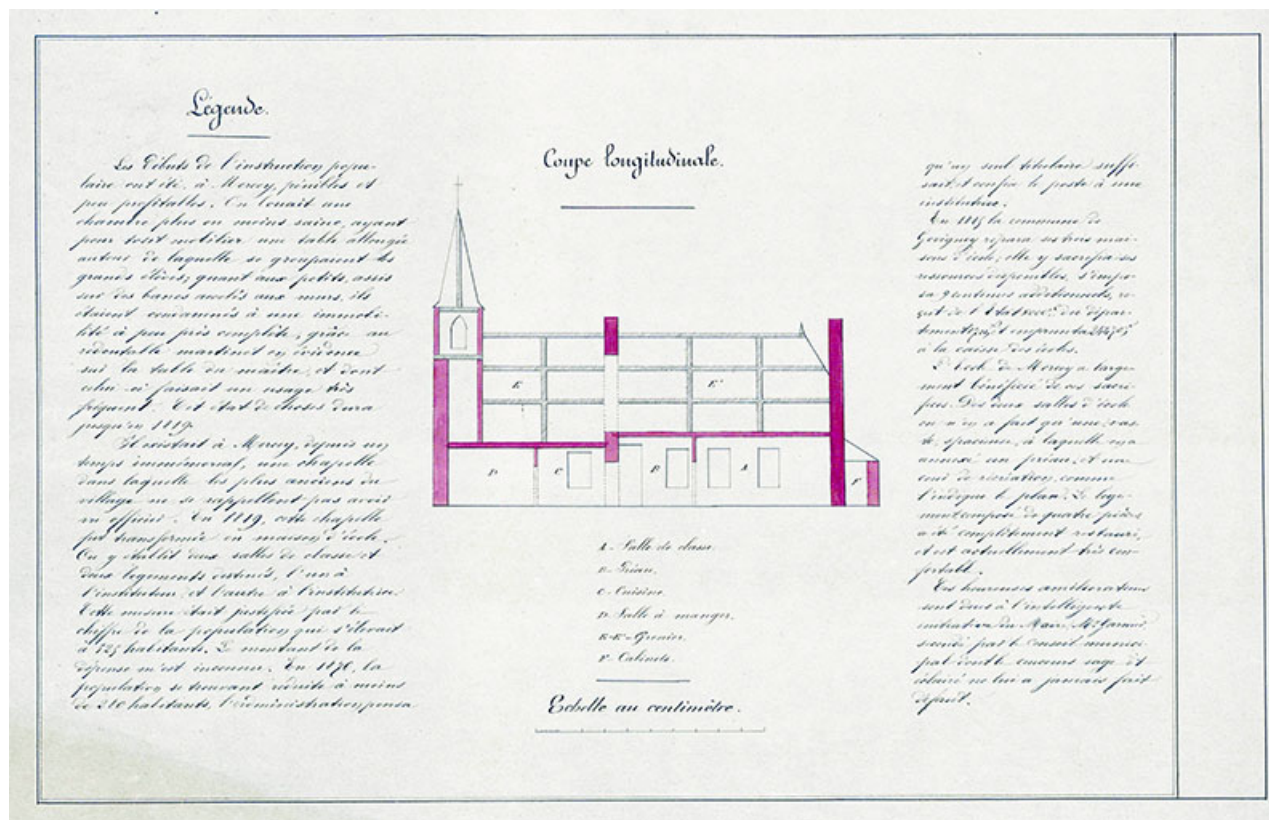 Légende.
Les débuts de l'instruction popu-
laire ont été, à Morcy, pénibles et
peu profitables. On louait une
chambre plus ou moins saine, ayant
pour tout mobilier une table allongée
autour de laquelle se groupaient les
grands élèves; quant aux petits, assis
sur des bancs accotés aux murs, ils
étaient condamnés à une immobi-
lité à peu près complète, grâce au
redoutable martinet en évidence
sur la table du maître, et dont
celui-ci faisait un usage très
fréquent. Cet état de choses dura
jusqu'en 1819.
Il existait à Morcy, depuis un
temps immémorial, une chapelle
dans laquelle les plus anciens du
village ne se rappellent pas avoir
vu officier. En 1819, cette chapelle
fut transformée en maison d'école.
On y établit deux salles de classe et
deux logements destinés, l'un à
l'instituteur et l'autre à l'institutrice.
Cette mesure était justifiée par le
chiffre de la population qui s'élevait
à 525 habitants. Le montant de la
dépense m'est inconnu. En 1876, la
population se trouvant réduite à moins
de 210 habitants, l'administration pensa
Coupe longitudinale.
E E'
D C B A F
A - Salle de classe.
B - Préau.
C - Cuisine.
D - Salle à manger.
E-E' - Grenier.
F - Cabinets.
Echelle au centimètre.
qu'un seul titulaire suffi-
sait et confia le poste à une
institutrice.
En 1885 la commune de
Gevigney répara ses trois mai-
sons d'école; elle y sacrifia ses
ressources disponibles, s'impo-
sa centimes additionnels, re-
çut de l'Etat du dépar-
tement et emprunta
à la caisse des écoles.
L'école de Morcy a large-
ment bénéficié de ces sacri-
fices. Des deux salles d'école
on n'en a fait qu'une, vas-
te, spacieuse, à laquelle on a
annexé un préau et une
cour de récréation, comme
l'indique le plan. Le loge-
ment composé de quatre pièces
a été complètement restauré,
et est actuellement très con-
fortable.
Ces heureuses améliorations
sont dues à l'intelligente
initiative du Maire, Mr
secondé par le Conseil munici-
pal dont le concours sage et
éclairé ne lui a jamais fait
défaut.